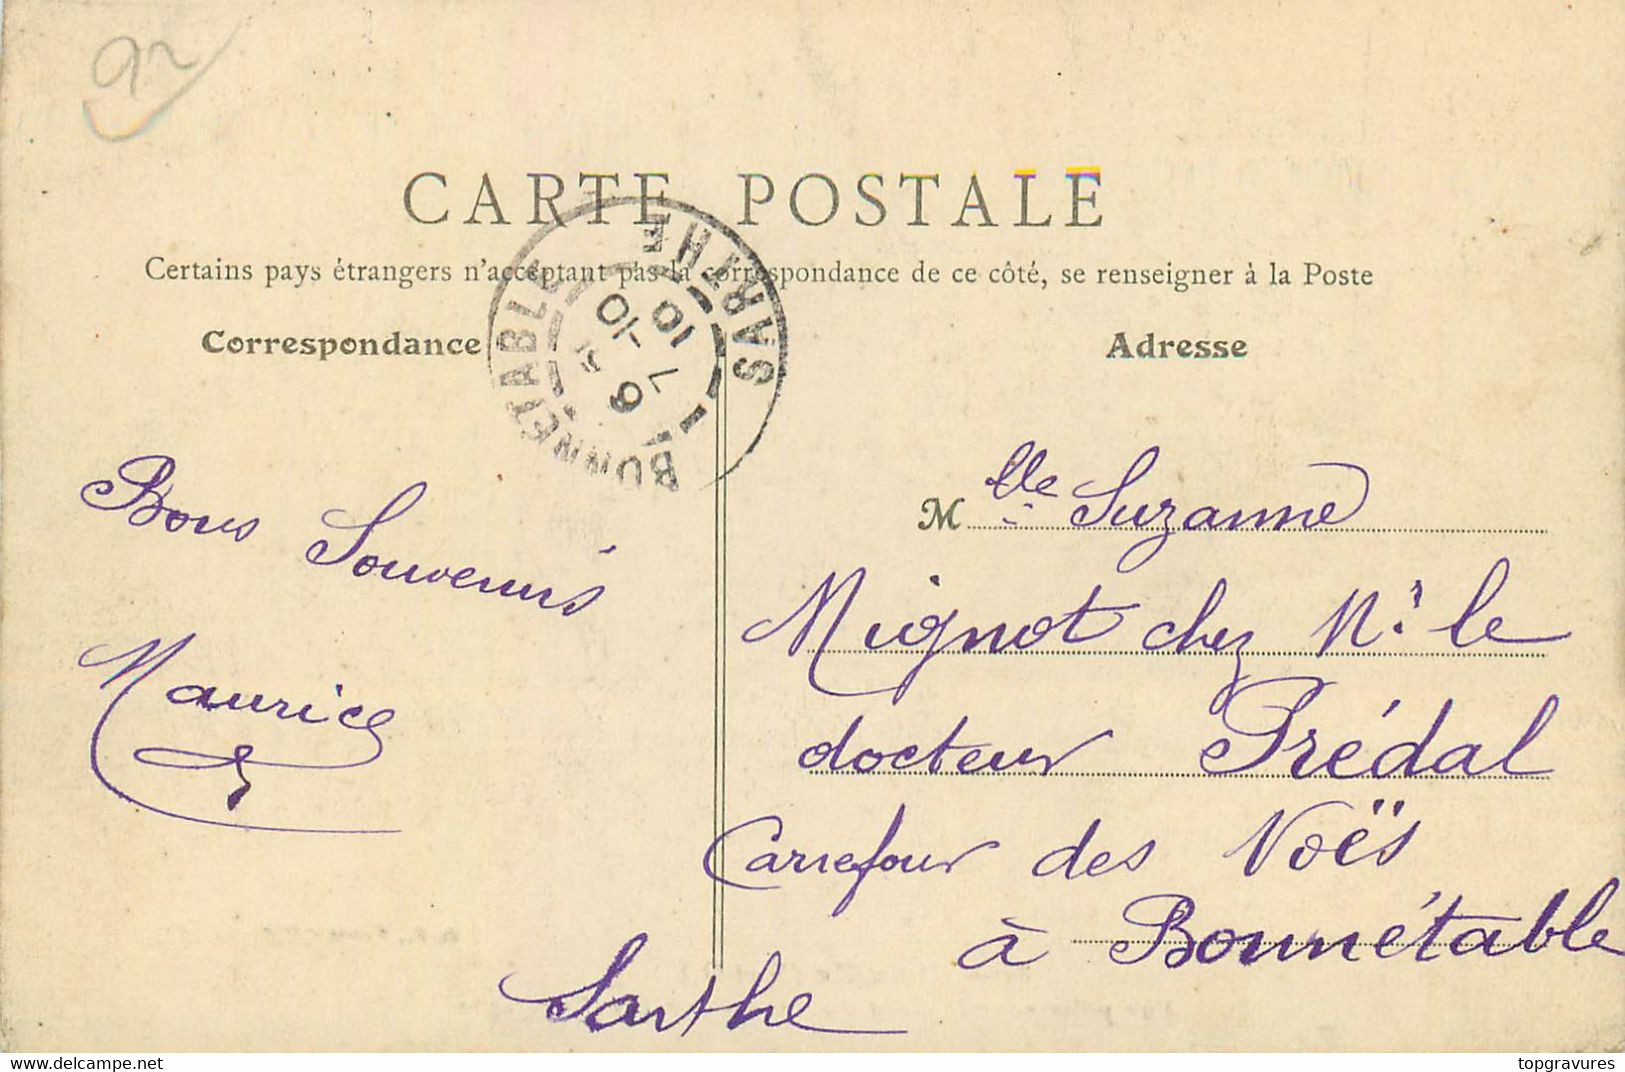 92
CARTE POSTALE
Certains pays étrangers n'acceptant pas la correspondance de ce côté, se renseigner à la Poste
Correspondance
Adresse
BONNETABLE
SARTHE
10
7-10
6
Bons Souvenirs
Maurice
Mlle Suzanne
Mignot chez Mr le
docteur Prédal
Carrefour des Noës
à Bonnétable
Sarthe
https://www.delcampe.net
topgravures